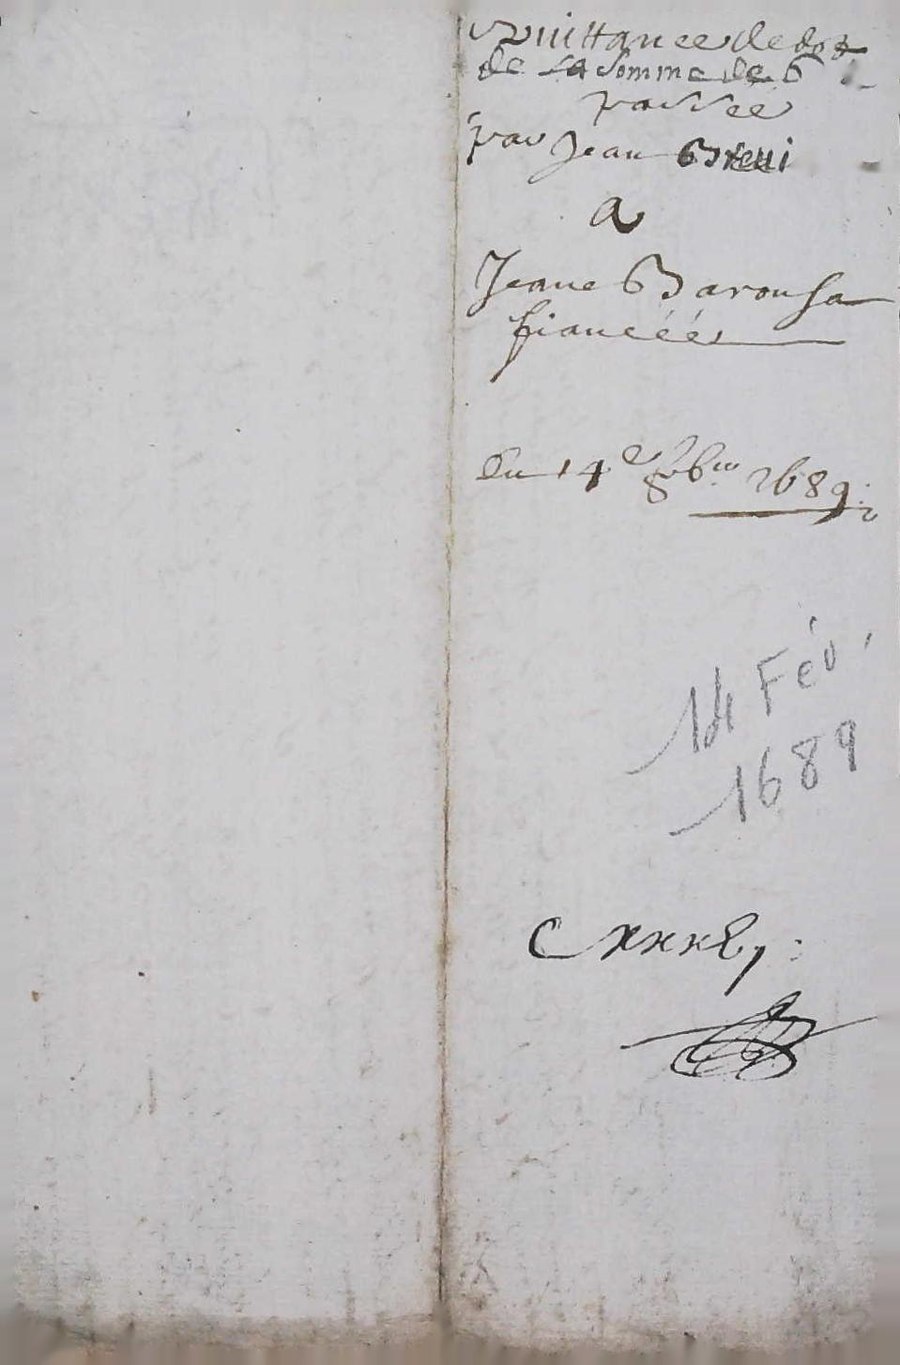 Quittance de dot
de la somme de 6
passée
par Jean
a
Jeane Barousa
fiancéé
Du 14e 1689
14 Fév.
1689